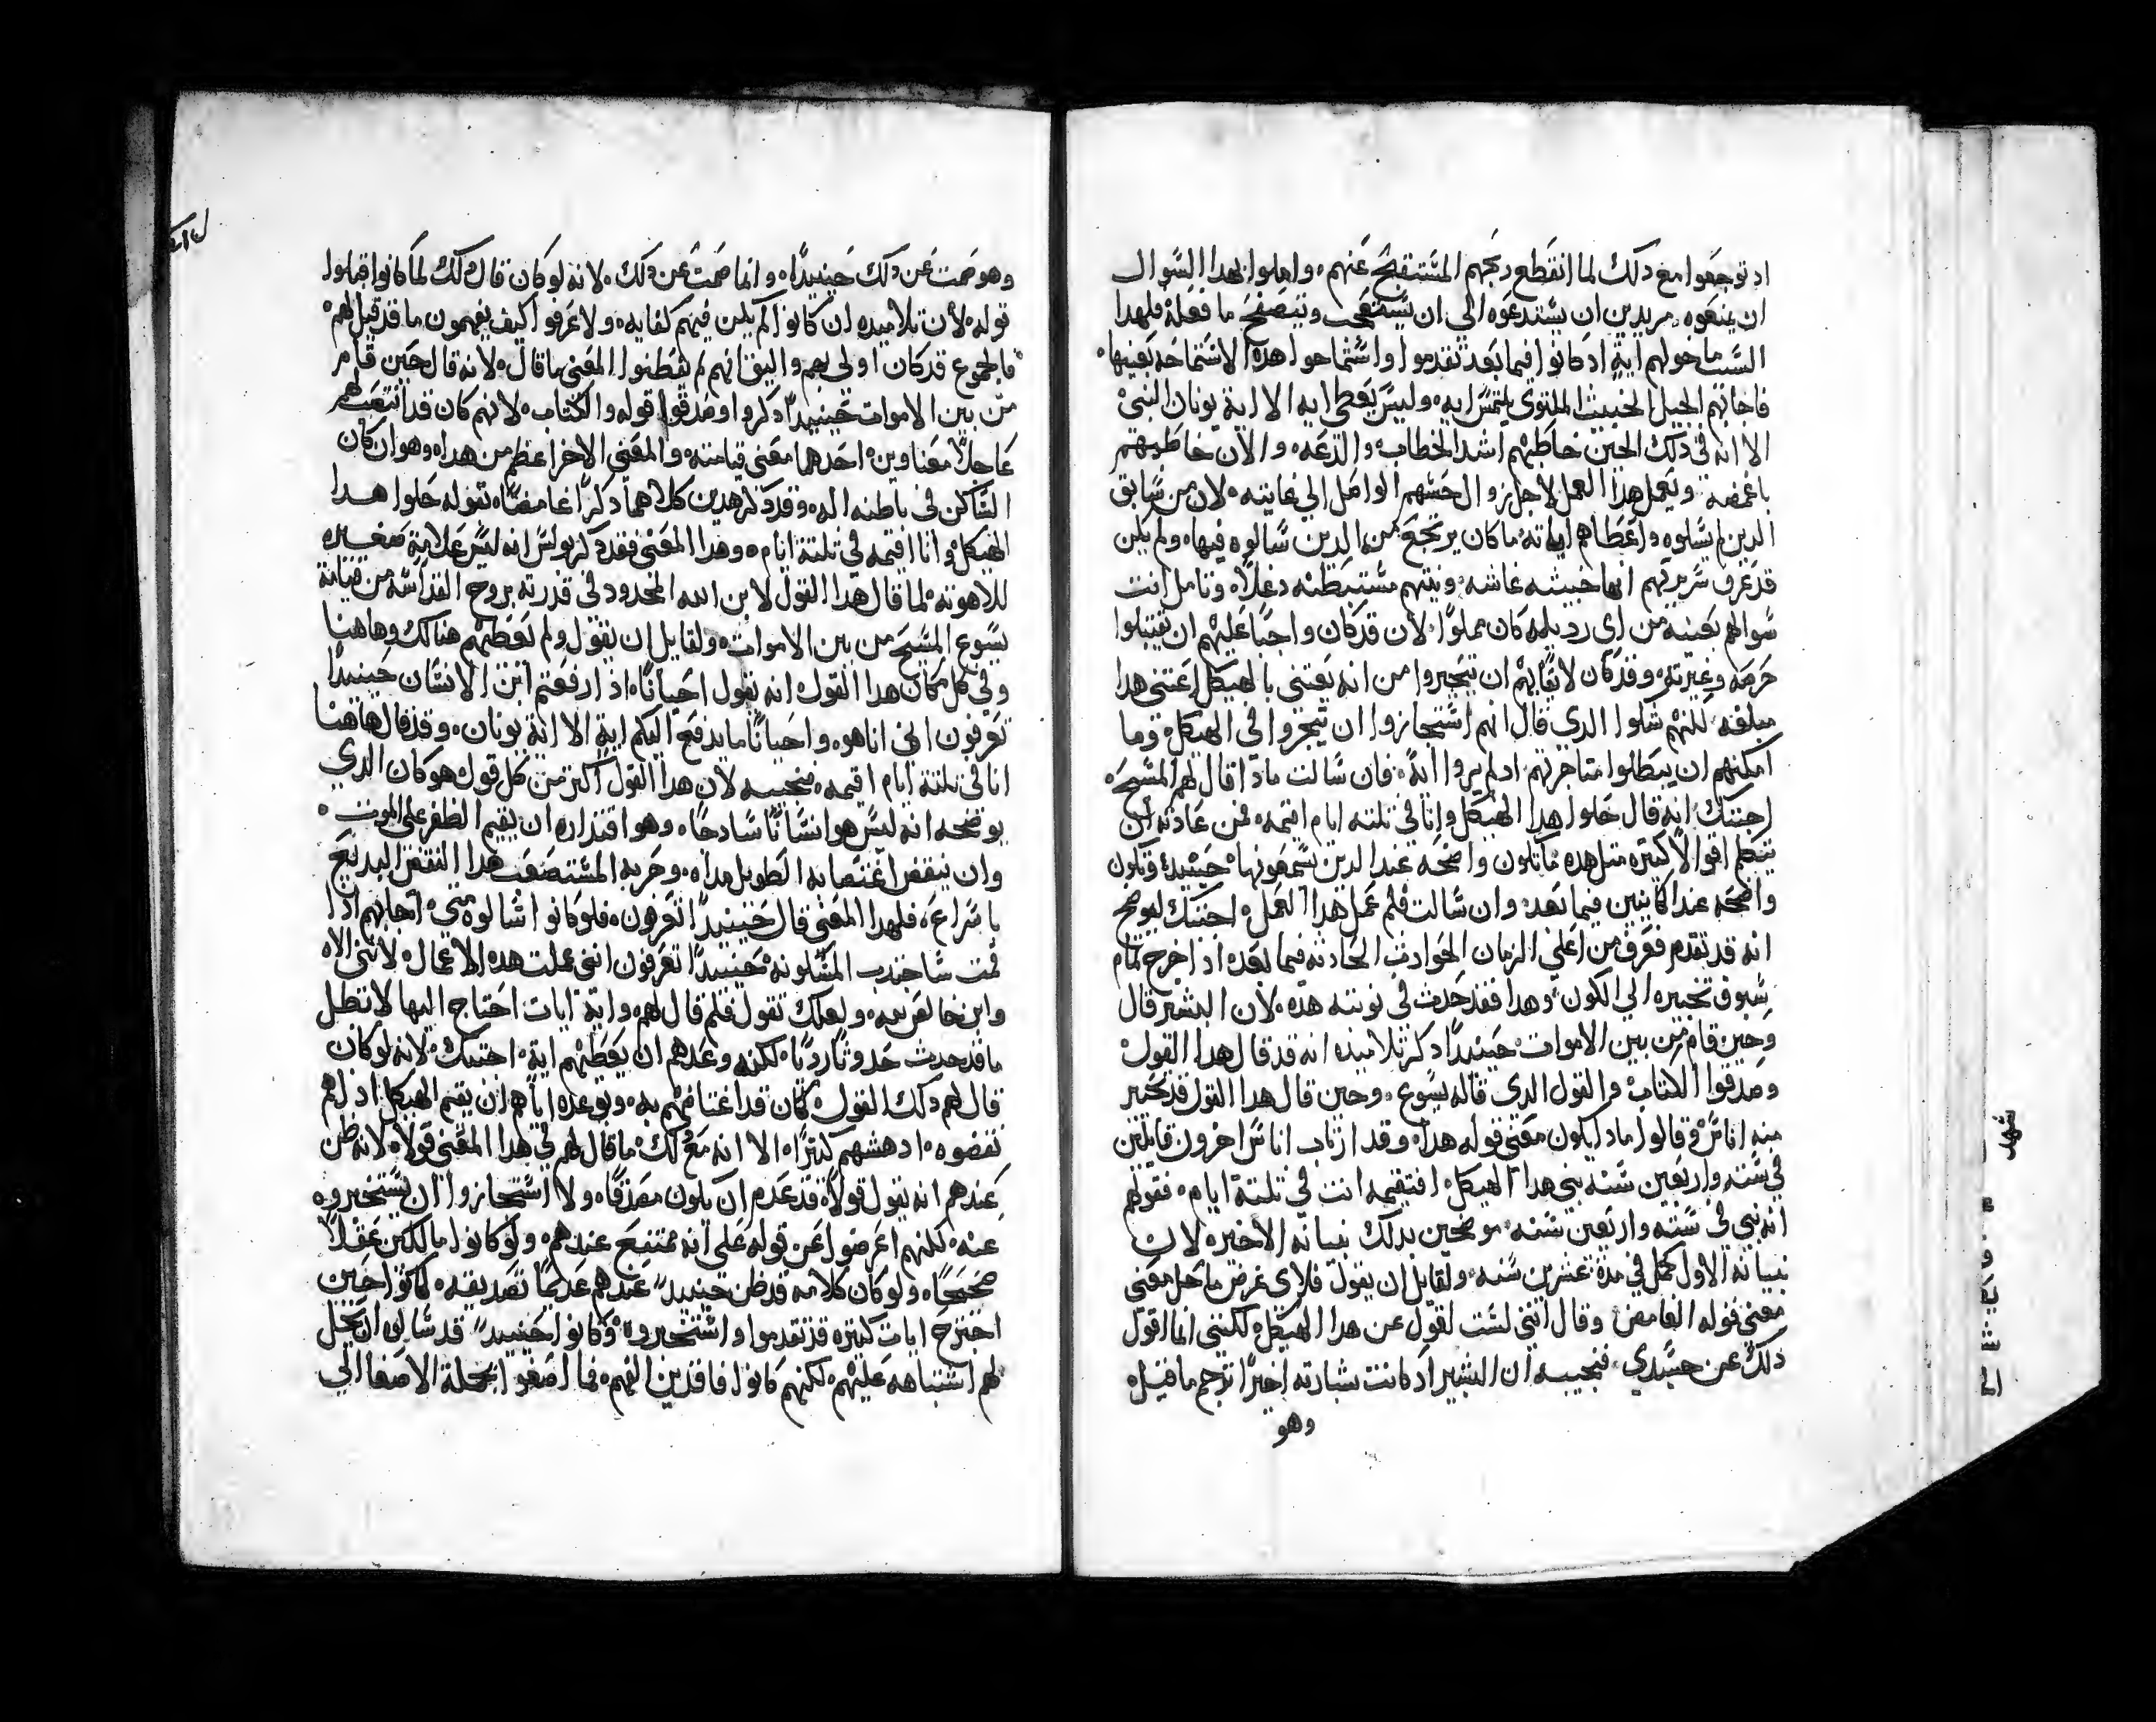 اد توجعوا مع دلك لما انقطع ربحهم المستقبح عنهم، واملوا بهدا السوال
ان يمنعوه، مريدين ان يستدعوه الى ان يستعفى ويتصفح ما فعله فلهدا
السبب ما خولهم اية اد كانوا فيما بعد تقدموا واستماحوا هده الاستماحه بعينها،
فاجابهم الجيل الخبيث الملتوي يلتمس ايه، وليس يعطى ايه الا اية يونان النبي
الا انه في دلك الحين خاطبهم اشد الخطاب والدعه، والان خاطبهم
باغمضه ويعمل هدا العمل لاجل زوال حسهم الواصل الى غايته، لان من سابق
الدين لم يسلوه واعطاهم اياته ما كان يرتجع من الدين سالوه فيها، ولم يكن
قد عرف سريرتهم انها خبيثه غاشه، ونيتهم مستبطنه دغلاً، وتامل انت
سوالهم بعينه من اي رديله كان مملواً، لان قد كان واجباً عليهم ان يقبلوا
حرصه وغيرته، وقد كان لايقا بهم ان يتحيروا من انه يعتني بالهيكل اعتنى هدا
مبلغه لكنهم شكوا الدي قال انهم استجازوا ان يتجروا في الهيكل، وما
امكنهم ان يبطلوا متاجرتهم ادا لم يروا اية، فان سالت مادا قال لهم المسيح،
اجبتك انه قال حلوا هدا الهيكل وانا في تلتة ايام اقيمه، فمن عادته ان
يتكلم اقوالاً كتيره متل هده ما تكون واضحه عند الدين يسمعونها حينيدٍ، وتكون
واضحه عند الكاينين فيما بعد، وان سالت فلم عمل هدا العمل، اجبتك ليوضح
انه قد تقدم فعرف من اعلى الزمان الحوادث الحادثه فيما بعد، اد اخرج تمام
سبوق تخبيره الى الكون، وهدا فقد حدث في نبوته هده، لان البشير قال
وحين قام من بين الاموات حينيداً دكر تلاميده انه قد قال هدا القول
وصدقوا الكتاب والقول الدى قاله يسوع، وحين قال هدا القول قد تحير
منه اناس وقالوا مادا يكون معنى قوله هدا، وقد ارتاب اناس اخرون قايلين
في سته واربعين سنه بنى هدا الهيكل افتقيمه انت في تلتة ايام، فقولهم
انه بنى في سته واربعين سنه، موضحين بدلك بنيانه الاخير، لان
بنيانه الاول كمل في مدة عشرين سنه، ولقايل ان يقول فلاى غرض ما حل معنى
معنى قوله الغامض وقال انني لست اقول عن هدا الهيكل لكنني انما اقول
دلك عن جسدي، فنجيبه ان البشير اد كانت بشارته اخيراً ترجم ما قيل،
وهو
وهو صمت عن دلك حينيداً، وانما صمت عن دلك، لانه لو كان قال دلك لما كانوا اقبلوا
قوله، لان تلاميده ان كانوا لم يكن فيهم كفايه، ولا عرفوا كيف يفهمون ما قد قيل لهم،
فالجموع قد كان اولى بهم واليق انهم لم يفطنوا لمعنى ما قال، لانه قال حين قام
من بين الاموات حينيداً دكروا وصدقوا قوله والكتاب، لانهم كان قد انتصب لهم
عاجلاً معناوين، احدهما معنى قيامته، والمعنى الاخر اعظم من هدا، وهو ان كان
الساكن في باطنه اله، وقد دكر هدين كلاهما دكراً غامضاً، بقوله حلوا هدا
الهيكل وانا اقيمه في تلتة ايام، وهدا المعنى فقد دكر بولس انه ليس علامة صغيره
للاهوته، لما قال هدا القول لابن الله المحدود في قدرته بروح القداسه من قيامة
يسوع المسيح من بين الاموات، ولقايل ان يقول ولم لم يعطهم هنالك وهاهنا
وفي كل مكان هدا القول، انه يقول احياناً، اذ ارفعتم ابن الانسان حينيداً
تعرفون انى انا هو، واحياناً ما يدفع اليكم اية الا اية يونان، وقد قال هاهنا
انا في تلتة ايام اقيمه، فنجيبه لان هدا القول اكتر من كل قول هو كان الدي
يوضحه انه ليس هو انساناً سادجاً، وهو اقتداره ان يقيم الظفر على الموت،
وان ينقض اغتصابه الطويل مداه، وحربه المستصعب هدا النقض البديع
باسراع، فلهدا المعنى قال حينيداً تعرفون، فلو كانوا سالوه متى، اجابهم ادا
قمت ساجدب المسكونة حينيداً تعرفون انني عملت هده الاعمال، لانني الاه
وابن خالقٍ بعينه، ولعلك تقول فلم قال لهم واية ايات احتاج اليها لا تطل
ما قد حدث حدوثاً ردياً، لكنه وعدهم ان يعطيهم اية، اجبتك، لانه لو كان
قال لهم دلك القول، كان قد اغتاضهم به، وبوعده اياهم ان يقيم الهيكل اد هم
نقضوه، ادهشهم كتيراً، الا انه مع دلك ما قال لهم في هدا المعنى قولاً، لانه ظن
عندهم انه يقول قولاً قد عدم ان يكون مصدقاً، ولا استجازوا ان يستخبروه
عنه، لكنهم اعرضوا عن قوله على انه ممتنع عندهم، ولو كانوا مالكين عقلاً
صحيحاً، ولو كان كلامه قد ظن حينيدٍ عندهم عديماً تصديقه، كانوا حين
اجترح ايات كتيره قد تقدموا واستخبروه، وكانوا حينيدٍ قد سالوه ان يحل
لهم اشتباهه عليهم، لكنهم كانوا فاقدين الفهم، فما اصغوا بجملة الاصغا الي